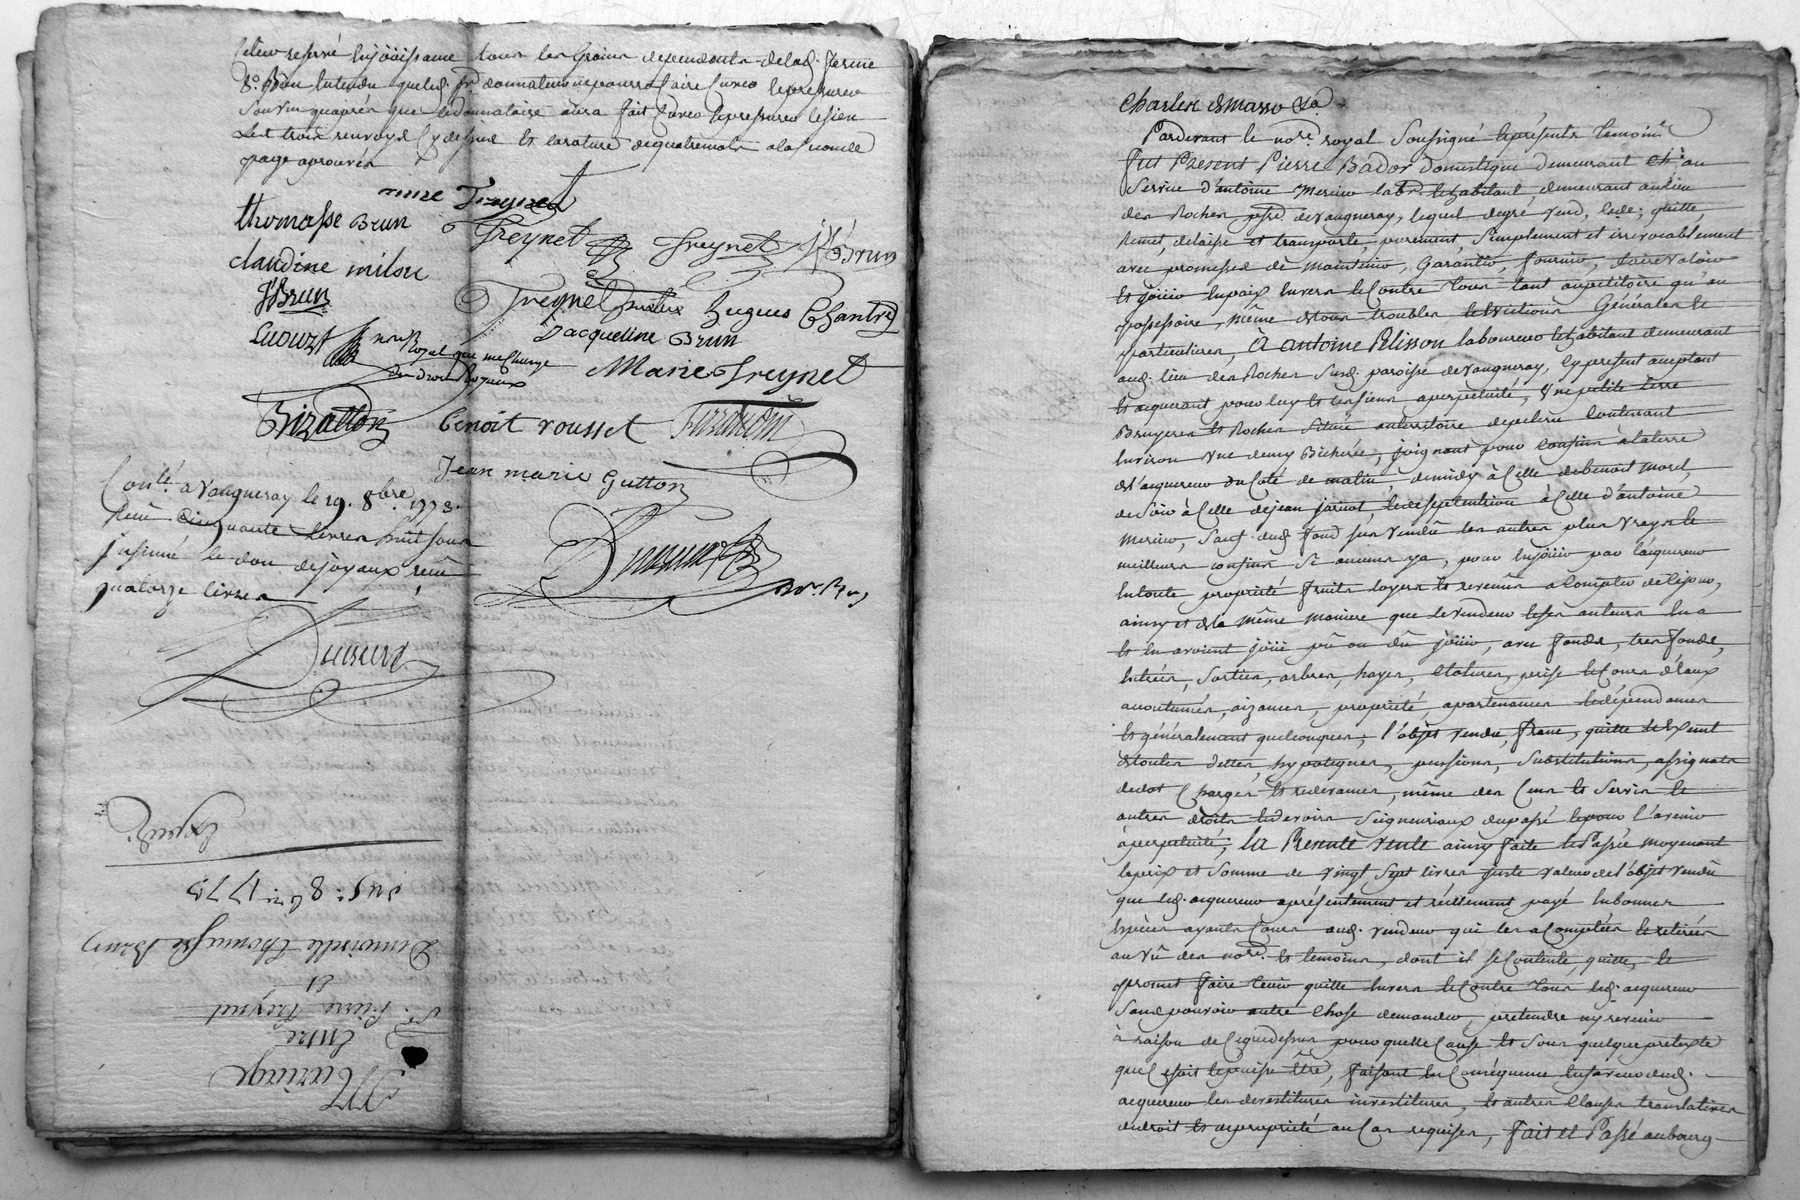 se reservé la jöüissance tous les Grains dependants de lad. ferme
8.° Bien Entendu que led. Sr donnateur ne pourra faire Cuver le pressurer
Son vin qu'aprés que le donnataire aura fait Cuver le pressurer le sien
Les trois renvoys Cy dessus et la rature de quatre mots a la seconde
page aprouvés
mre Freynet
thomasse Brun
Freynet
freynet
Brun
claudine milou
JBrun
Freynet
hugues Chantre
Jacqueline Brun
Royal
Marie freynet
Benoit rousset
Ferrandin
Jean marie Gutton
Conlé. a Vaugneray le 19. 8bre. 1773.
Reçu Cinquante livres huit sous
Insinué le don de joyaux reçu
quatorze livres
Mariage
Entre
Sr. Pierre Freynet
Et
Demoiselle Thomasse Brun
du 5. 8bre 1773
Expédié
Charles
Pardevant le nore. royal Soussigné & présents temoins
fut Présent Pierre Bador domestique demeurant au
Service d'antoine Merieu labr. & habitant demeurant au lieu
des Rocher psse de Vaugneray, lequel degré vend, cede, quitte,
remet, delaisse et transporte, purement, Simplement et irrevocablement
avec promesses de maintenir, Garantir, fournir, faire valoir
et jöüir En paix Envers & Contre tous tant au petitoire qu'au
possessoire, même de tous troubles & Evictions Générales &
particulieres, à antoine Pelisson laboureur & habitant demeurant
aud. lieu des Rocher Susd. paroisse de Vaugneray, Cy present aceptant
et aquerant pour luy & les siens a perpetuité, Une petite terre
Bruyeres et Rocher Située au territoire de contenant
Environ Une demy Bicherée, joignant pour Confins à la terre
de l'aquereur du Coté de matin, de midy à Celle de benoit morel,
de Soir à Celle de jean jaricot & de septentrion à Celle d'antoine
Merieu, Sauf dud. fond sus Vendû les autres plus Vrays &
meilleurs confins Si aucuns y a, pour En jöüir par l'aquereur
En toute propriété fruits loyers & revenus a Compter de Ce jour,
ainsy et de la même maniere que le vendeur & ses auteurs En a
et En avoient jöüi pû ou dû jöüir, avec fonds, tres fonds,
Entrées, Sorties, arbres, hayes, Clotures, prise & Cours d'Eaux
acoutumés, aizances, propriété, apartenances & dépendances
et généralement quelconques; l'objet vendu, franc, quitte & Exempt
de toutes dettes, hypoteques, pensions, Substitutions, assignats
de dot Charges & redevances, même des Cens & Servis &
autres droits & devoirs Seigneuriaux du passé & pour l'avenir
à perpetuité; la Presente vente ainsy faite & Passée moyenant
le prix et Somme de Vingt Sept livres juste valeur de l'objet Vendû
que led. aquereur a présentement et réellement payé En bonnes
Especes ayants Cours aud. vendeur qui les a Comptées & retirées
au Vû des nore. & temoins, dont il se Contente, quitte, &
promet faire tenir quitte Envers & Contre tous led. aquereur
Sans pouvoir autre Chose demander, pretendre ny revenir
à raison de Ce que dessus pour quelle Cause & Sous quelque pretexte
que Ce soit & puisse Etre, faisant En Conséquence En faveur dud.
aquereur les devestitures investitures, & autres Clauses translatives
de droit & de proprieté au Cas requises, fait et Passé au bourg